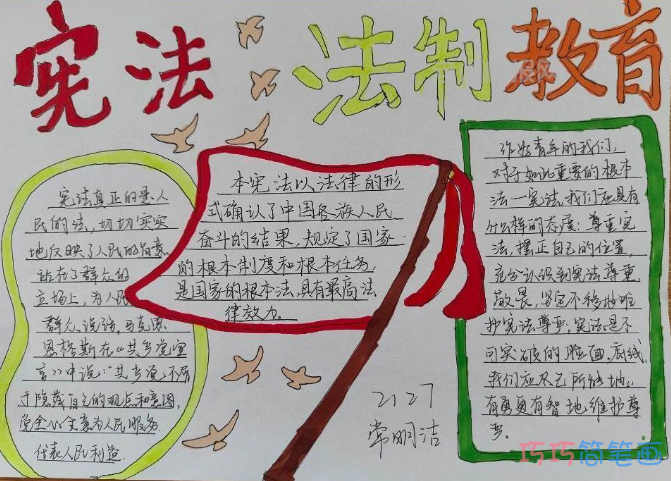 宪法 法制教育
宪法真正的是人
民的法,切切实实
地反映了人民的意
站在了群众的
立场上,为人民
群众说话,马克思
恩格斯在《共产党宣
言》中说:"共产党不屑
于隐蔽自己的观点和意图
党全心全意为人民服务
代表人民利益
本宪法以法律的形
式确认了中国各族人民
奋斗的结果,规定了国家
的根本制度和根本任务,
是国家的根本法,具有最高法
律效力.
作为青年的我们,
对于如此重要的根本
法—宪法,我们应具有
什么样的态度:尊重宪
法,摆正自己的位置,
充分认识到宪法尊重
敬畏,坚定不移地维
护宪法尊严,宪法是不
可突破的脸面、底线
我们应尽己所能地,
有勇更有智地维护尊
严
2127
常明洁
巧巧简笔画